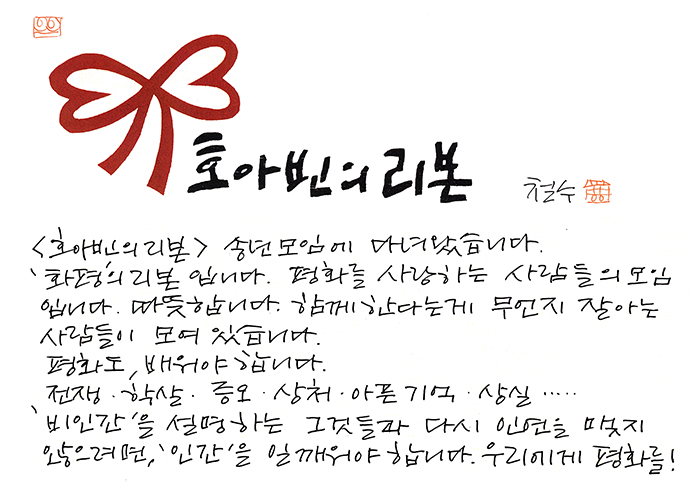 호아빈의 리본
철수
<호아빈의 리본> 송년모임에 다녀왔습니다.
'화평'의 리본 입니다. 평화를 사랑하는 사람들의 모임
입니다. 따뜻합니다. 함께한다는게 무언지 잘아는
사람들이 모여 있습니다.
평화도, 배워야 합니다.
전쟁·학살·증오·상처·아픈기억·상실·····
'비인간'을 설명하는 그것들과 다시 인연을 맺지
않으려면, '인간'을 일깨워야 합니다. 우리에게 평화를!